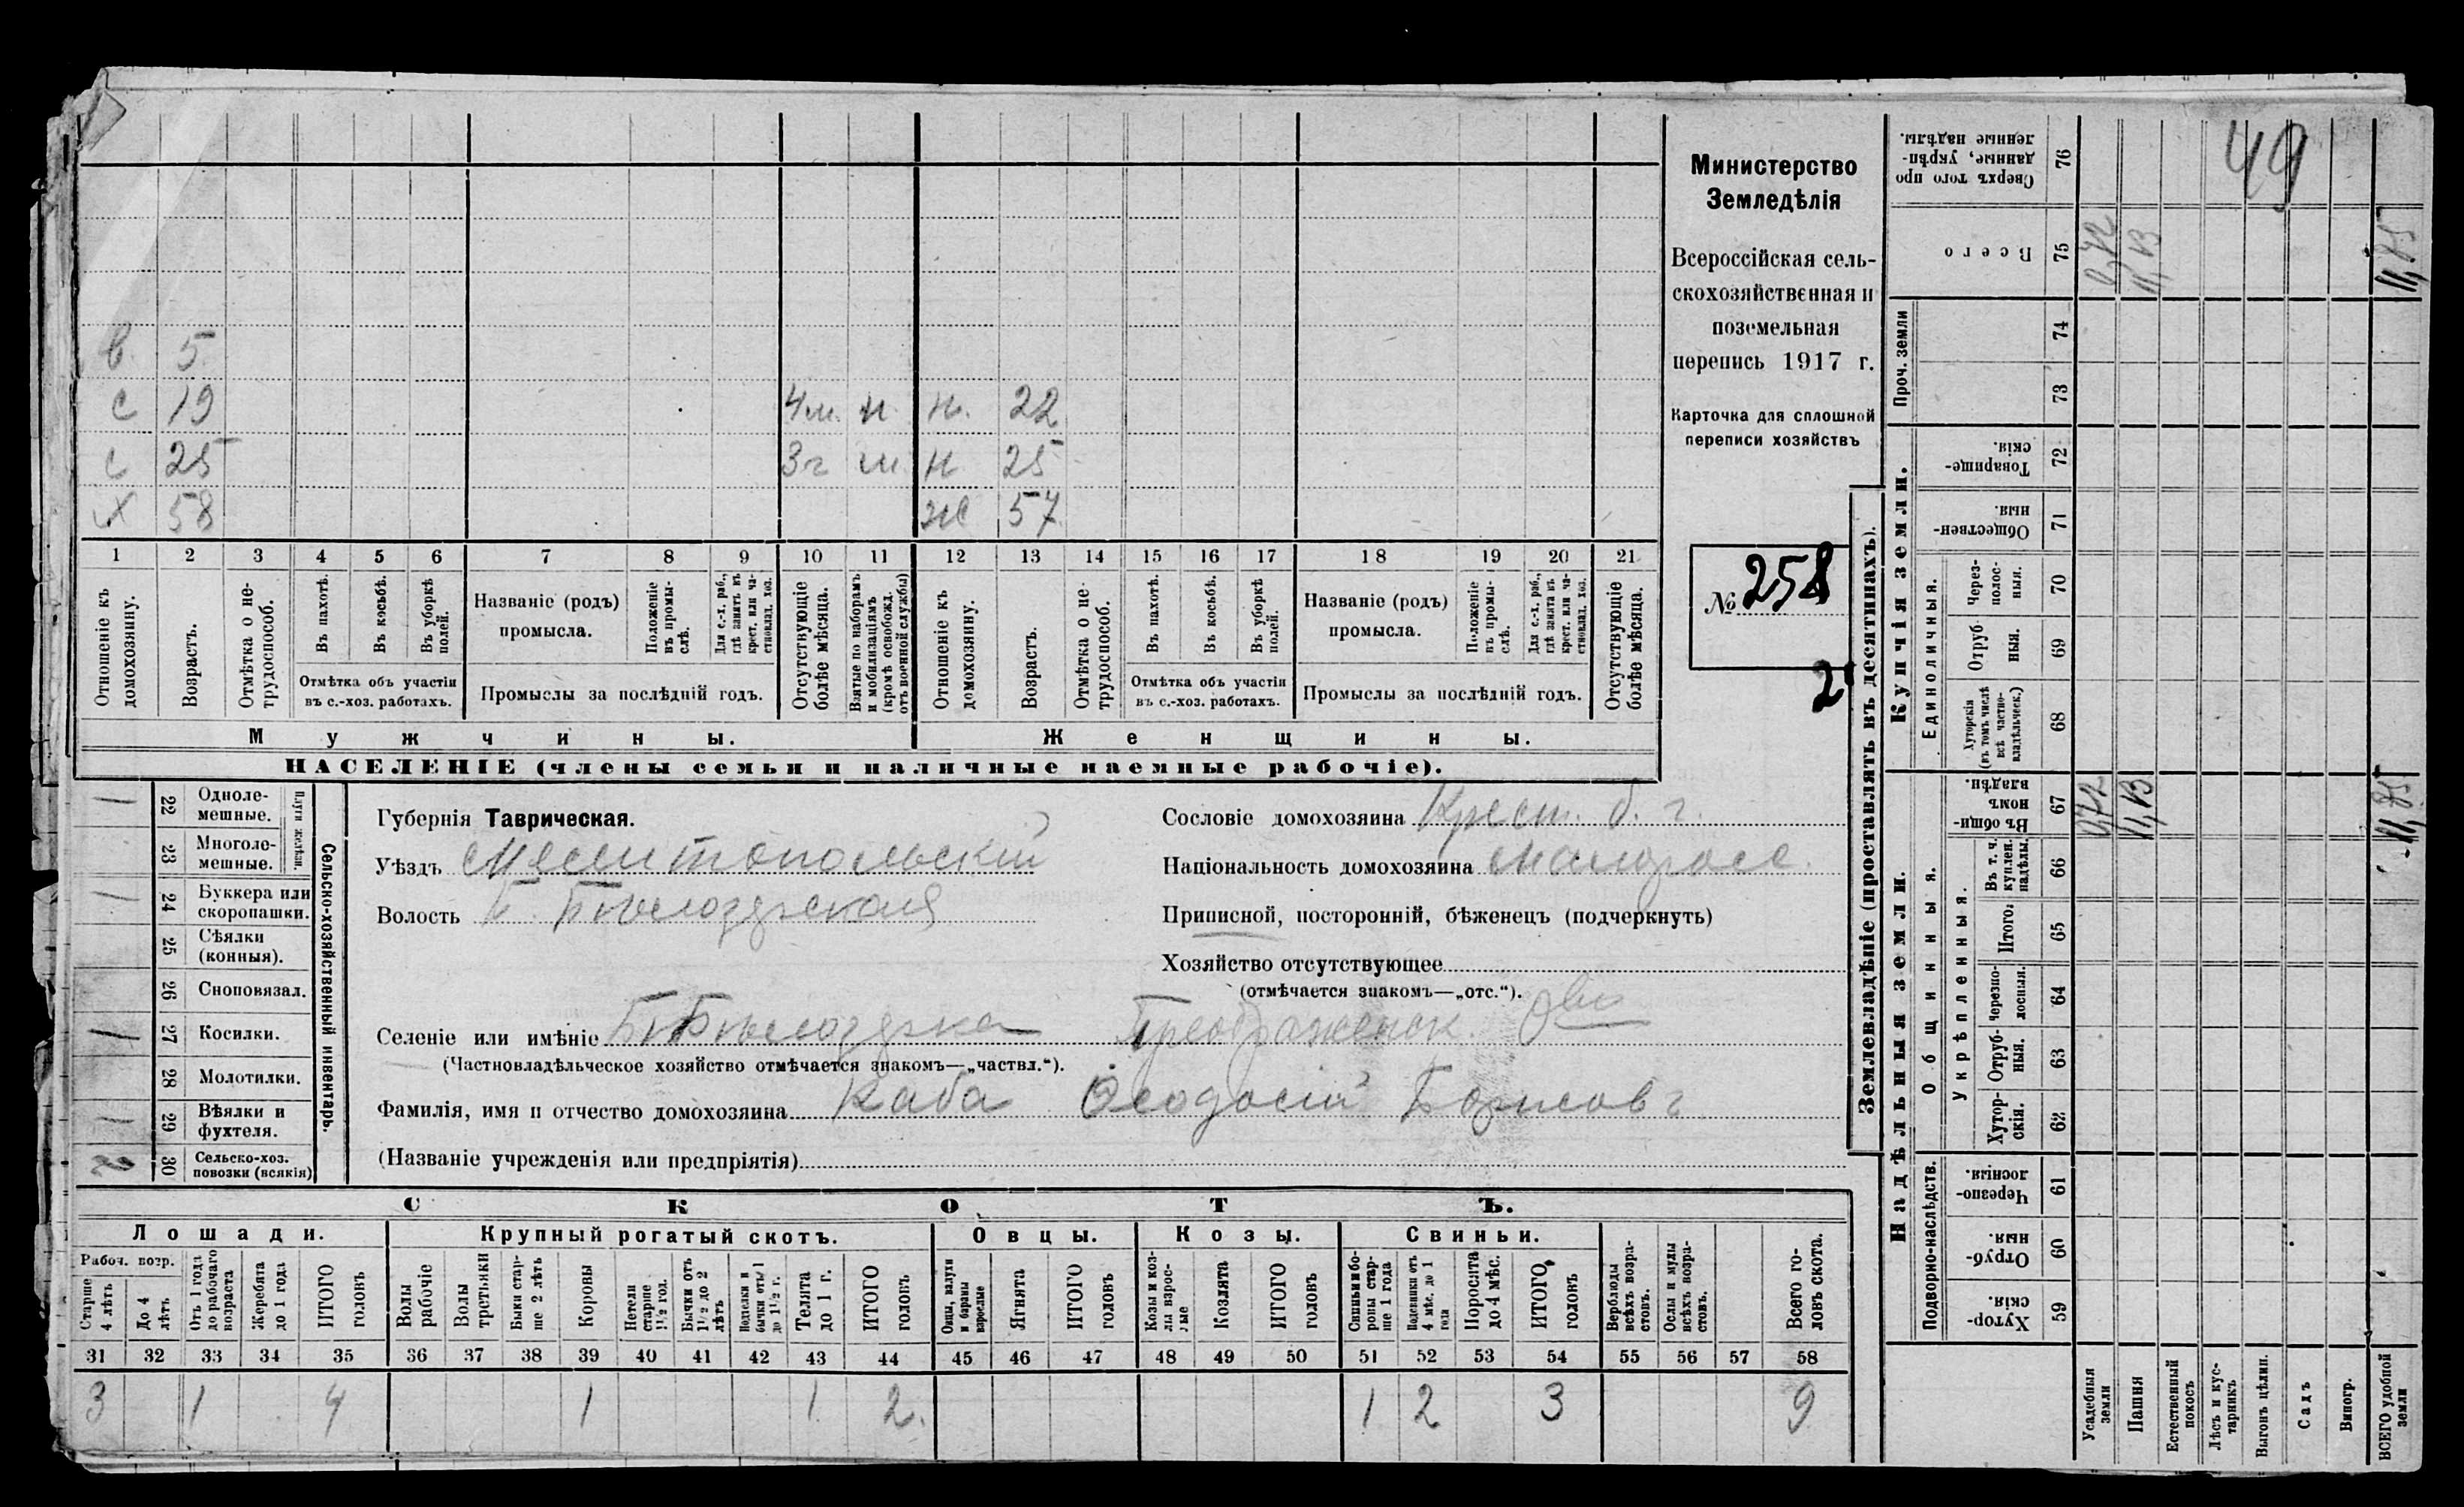 49
в 5
с 19 4 м. н н. 22
с 25 3 г м н 25
х 58 ж 57
1 2 3 4 5 6 7 8 9 10 11 12 13 14 15 16 17 18 19 20 21
Отношеніе къ домохозяину.
Возрастъ.
Отмѣтка о не-трудоспособ.
Въ пахотѣ.
Въ косьбѣ.
Въ уборкѣ полей.
Отмѣтка объ участіи
въ с.-хоз. работахъ.
Названіе (родъ)
промысла.
Положеніе въ промы-слѣ.
Для с.-х. раб., гдѣ занятъ въ крест. или ча-стновлад. хоз.
Промыслы за послѣдній годъ.
Отсутствующіе болѣе мѣсяца.
Взятые по наборамъ и мобилизаціямъ (кромѣ освобожд. отъ военной службы)
Отношеніе къ домохозяину.
Возрастъ.
Отмѣтка о не-трудоспособ.
Въ пахотѣ.
Въ косьбѣ.
Въ уборкѣ полей.
Отмѣтка объ участіи
въ с.-хоз. работахъ.
Названіе (родъ)
промысла.
Положеніе въ промы-слѣ.
Для с.-х. раб., гдѣ занята въ крест. или ча-стновлад. хоз.
Промыслы за послѣдній годъ.
Отсутствующіе болѣе мѣсяца.
Мужчины.
Женщины.
НАСЕЛЕНІЕ (члены семьи и наличные наемные рабочіе).
Министерство
Земледѣлія
Всероссійская сель-
скохозяйственная и
поземельная
перепись 1917 г.
Карточка для сплошной
переписи хозяйствъ
№ 258
2
1 22 Одноле-мешные.
23 Многоле-мешные.
Плуги желѣзн.
1 24 Буккера или скоропашки.
25 Сѣялки (конныя).
26 Сноповязал.
1 27 Косилки.
28 Молотилки.
1 29 Вѣялки и фухтеля.
2 30 Сельско-хоз. повозки (всякія)
Сельско-хозяйственный инвентарь.
Губернія Таврическая.
Уѣздъ Мелитопольскій
Волость Б. Бѣлозерская
Селеніе или имѣніе Б. Бѣлозерка Преображенск. О-во
(Частновладѣльческое хозяйство отмѣчается знакомъ—„частвл.“).
Фамилія, имя и отчество домохозяина Каба Ѳеодосій Борисов
(Названіе учрежденія или предпріятія)
Сословіе домохозяина Крест. б. г.
Національность домохозяина малоросс.
Приписной, посторонній, бѣженецъ (подчеркнуть)
Хозяйство отсутствующее
(отмѣчается знакомъ—„отс.“).
СКОТЪ.
Лошади. Крупный рогатый скотъ. Овцы. Козы. Свиньи.
Рабоч. возр.
Старше 4 лѣтъ
До 4 лѣтъ
Отъ 1 года до рабочаго возраста
Жеребята до 1 года
ИТОГО головъ
Волы рабочіе
Волы третьяки
Быки стар-ше 2 лѣтъ
Коровы
Нетели старше 1½ год.
Бычки отъ 1½ до 2 лѣтъ
Подтелки и бычки отъ 1 до 1½ г.
Телята до 1 г.
ИТОГО головъ
Овцы, валухи и бараны взрослые
Ягнята
ИТОГО головъ
Козы и коз-лы взрос-лые
Козлята
ИТОГО головъ
Свиньи и бо-ровы стар-ше 1 года
Подсвинки отъ 4 мѣс. до 1 года
Поросята до 4 мѣс.
ИТОГО головъ
Верблюды всѣхъ возра-стовъ.
Ослы и мулы всѣхъ возра-стовъ.
Всего го-ловъ скота.
31 32 33 34 35 36 37 38 39 40 41 42 43 44 45 46 47 48 49 50 51 52 53 54 55 56 57 58
3 1 4 1 1 2 1 2 3 9
Землевладѣніе (проставлять въ десятинахъ).
Купчія земли.
Надѣльныя земли.
Единоличныя.
Общинныя.
Укрѣпленныя.
Подворно-наслѣдств.
Проч. земли
Сверхъ того про данные, укрѣп-ленные надѣлы. 76
Всего 75 0,72 11,13 11,85
74
73
Товарище-скія. 72
Обществен-ныя. 71
Через-полос-ныя. 70
Отруб-ныя. 69
Хуторскія (въ томъ числѣ всѣ частно-владѣльческ.) 68
Въ общи-номъ владѣн. 67 0,72 11,13 11,85
Въ т. ч. куплен. надѣлы. 66
Итого: 65
Черезпо-лосныя. 64
Отруб-ныя. 63
Хутор-скія. 62
Черезпо-лосныя. 61
Отруб-ныя. 60
Хутор-скія. 59
Усадебныя земли
Пашня
Естественный покосъ
Лѣсъ и кус-тарникъ
Выгонъ цѣлин.
Садъ
Виногр.
ВСЕГО удобной земли